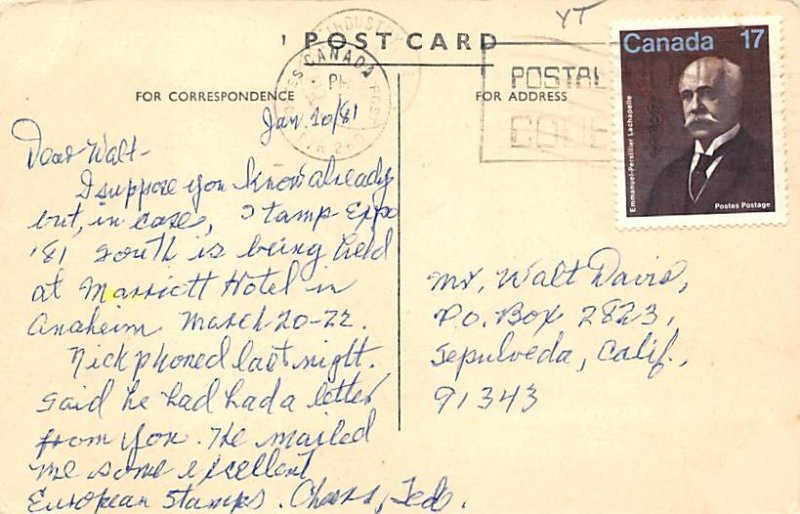 YT
POST CARD
CANADA
PM
POSTAL
CODE
Canada 17
Emmanuel-Persillier Lachapelle
Postes Postage
FOR CORRESPONDENCE
FOR ADDRESS
Jan. 20/81
Dear Walt-
I suppose you know already
but, in case, Stamp Expo
'81 South is being held
at Marriott Hotel in
Anaheim March 20-22.
Nick phoned last night.
Said he had had a letter
from you. He mailed
me some excellent
European stamps. Cheers, Ted.
Mr. Walt Davis,
P.O. Box 2823,
Sepulveda, Calif.,
91343